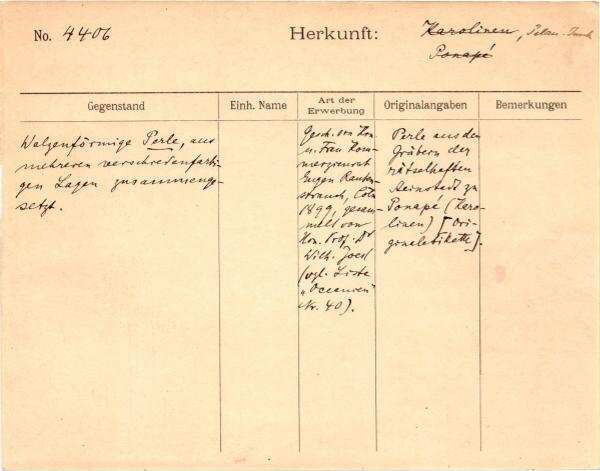 No. 4406
Herkunft: Karolinen, Pelau-Inseln
Ponapé
Gegenstand
Einh. Name
Art der
Erwerbung
Originalangaben
Bemerkungen
Walzenförmige Perle, aus
mehreren verschiedenfarbi-
gen Lagen zusammenge-
setzt.
Gesch. von Kom
u. Frau Kom-
merzienrat
Eugen Rauten-
strauch, Cöln
1899, gesam-
melt von
Hrn. Prof. Dr
Wilh. Joest
(vgl. Liste
„Oceanien"
Nr. 40).
Perle aus den
Gräbern der
rätselhaften
Steinstadt zu
Ponapé (Karo-
linen) [Ori-
ginaletikette].